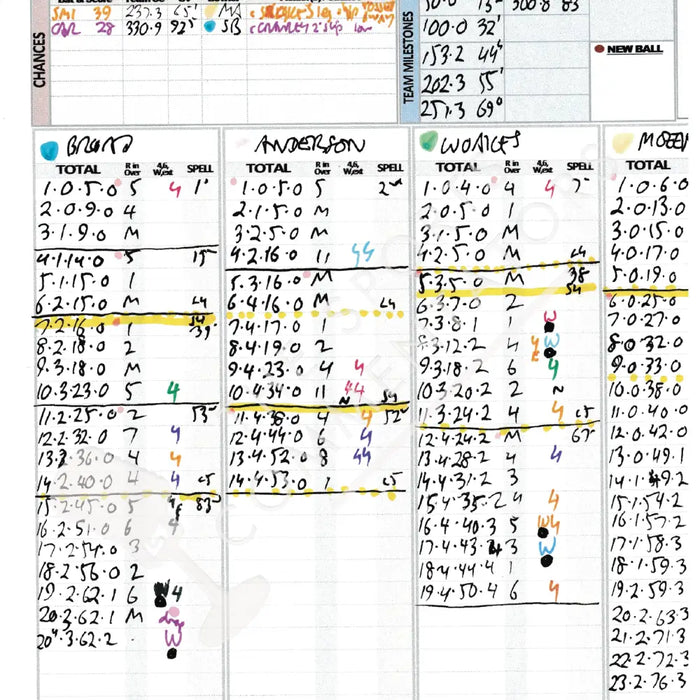 SMI 39 237.3 65' MA
28 330.9 92' SB
CHANCES
TEAM MILESTONES
100.0 32'
153.2 44'
202.3 55'
251.3 69'
300.8 83
NEW BALL
BROAD
TOTAL R in Over 4,6, W,ext SPELL
1.0.5.0 5 4 1'
2.0.9.0 4
3.1.9.0 M
4.1.14.0 5 15
5.1.15.0 1
6.2.15.0 M LH
7.2.16.0 1 39'
8.2.18.0 2
9.3.18.0 M
10.3.23.0 5 4
11.2.25.0 2 53
12.2.32.0 7 4
13.2.36.0 4 4
14.2.40.0 4 4 c5
15.2.45.0 5 83'
16.2.51.0 6 4
17.2.54.0 3
18.2.56.0 2
19.2.62.1 6 W4
20.3.62.1 M drop
20.3.62.2 . W
ANDERSON
TOTAL R in Over 4,6, W,ext SPELL
1.0.5.0 5 2nd
2.1.5.0 M
3.2.5.0 M
4.2.16.0 11 44
5.3.16.0 M
6.4.16.0 M LH
7.4.17.0 1
8.4.19.0 2
9.4.23.0 4 4
10.4.34.0 11 44
11.4.38.0 4 4 52
12.4.44.0 6 4
13.4.52.0 8 44
14.4.53.0 1 c5
WOAKES
TOTAL R in Over 4,6, W,ext SPELL
1.0.4.0 4 4 7
2.0.5.0 1
3.1.5.0 M
4.2.5.0 M LH
5.3.5.0 M 38
6.3.7.0 2
7.3.8.1 1 W
8.3.12.2 4 4 W
9.3.18.2 6 4
10.3.20.2 2 N
11.3.24.2 4 4 c5
12.4.24.2 M 67
13.4.28.2 4 4
14.4.31.2 3
15.4.35.2 4 4
16.4.40.3 5 W4
17.4.43.4 3 W
18.4.44.4 1
19.4.50.4 6 4
MOEEN
TOTAL R in Over
1.0.6.0
2.0.13.0
3.0.15.0
4.0.17.0
5.0.19.0
6.0.25.0
7.0.27.0
8.0.32.0
9.0.33.0
10.0.38.0
11.0.40.0
12.0.42.0
13.0.49.1
14.1.49.2
15.1.54.2
16.1.57.2
17.1.58.3
18.1.59.3
19.2.59.3
20.2.63.3
21.2.71.3
22.2.72.3
23.2.76.3